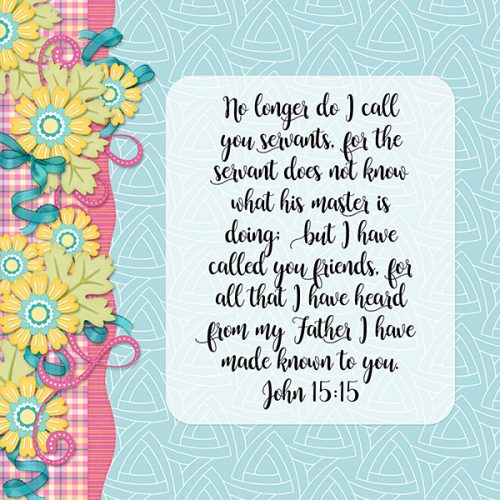 No longer do I call
you servants, for the
servant does not know
what his master is
doing; but I have
called you friends, for
all that I have heard
from my Father I have
made known to you.
John 15:15